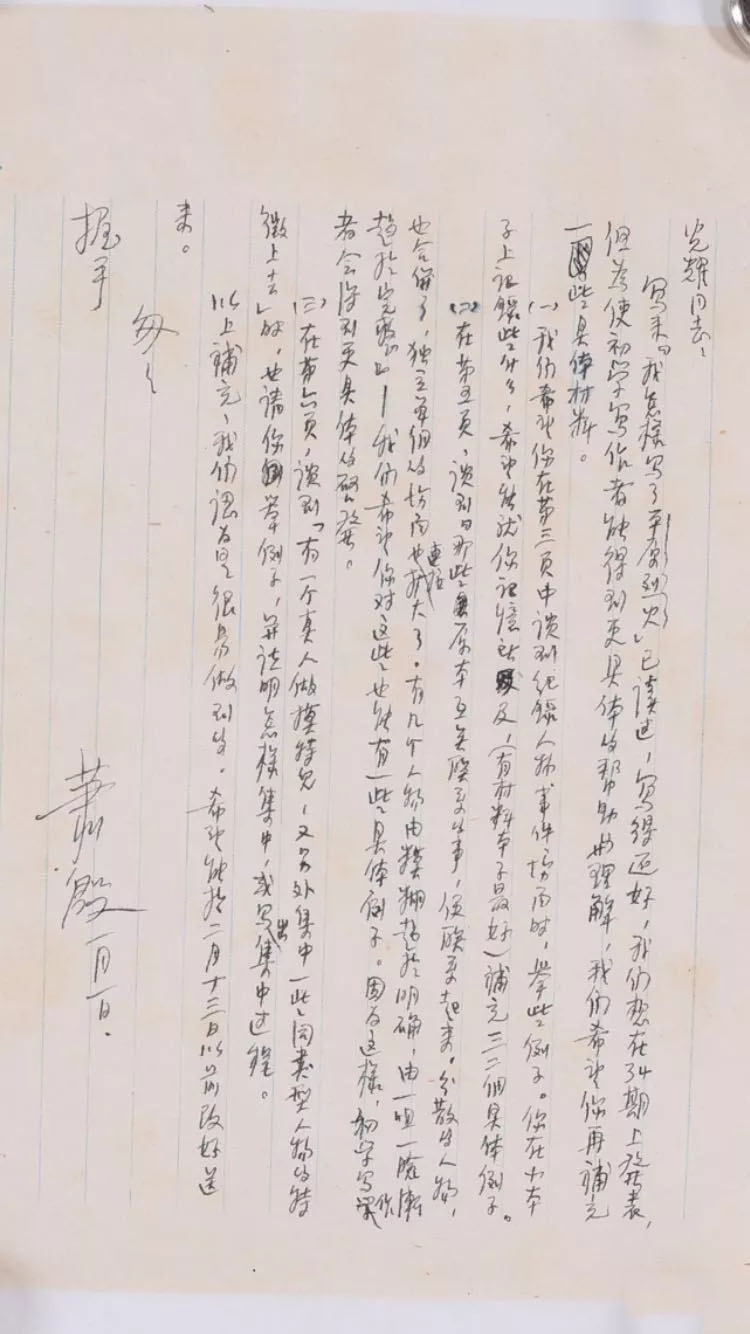 光耀同志：
写来的“我怎样写了平原烈火”已读过，写得还好，我们想在34期上发表，
但为使初学写作者能得到更具体的帮助和理解，我们希望你再补充
一些具体材料。
(一)我们希望你在第三页中谈到纪录人物事件场面时，举些例子。你在小本
子上记录些什么，希望能就你记忆所及，(有材料本子最好)补充三二個具体例子。
(二)在第五页，谈到“那些原本互无联系的事，便联系起来。分散的人物，
也合併了，独立单個的场面也连接扩大了。有几个人物由模糊趋於明确，由一咀一脸渐
趋於完整”——我们希望你对这些也能有一些具体例子。因为这样，初学写作
者会得到更具体的启发。
(三)在第六页，谈到「有一个真人做模特兒，又另外集中一些同类型人物的特
徵上去」时，也请你举例子，并说明怎样集中，或写出集中过程。
以上補充，我们认为是很易做到的。希望能於二月十三日以前改好送
来。
匆匆
握手
萧殷 一月一日.